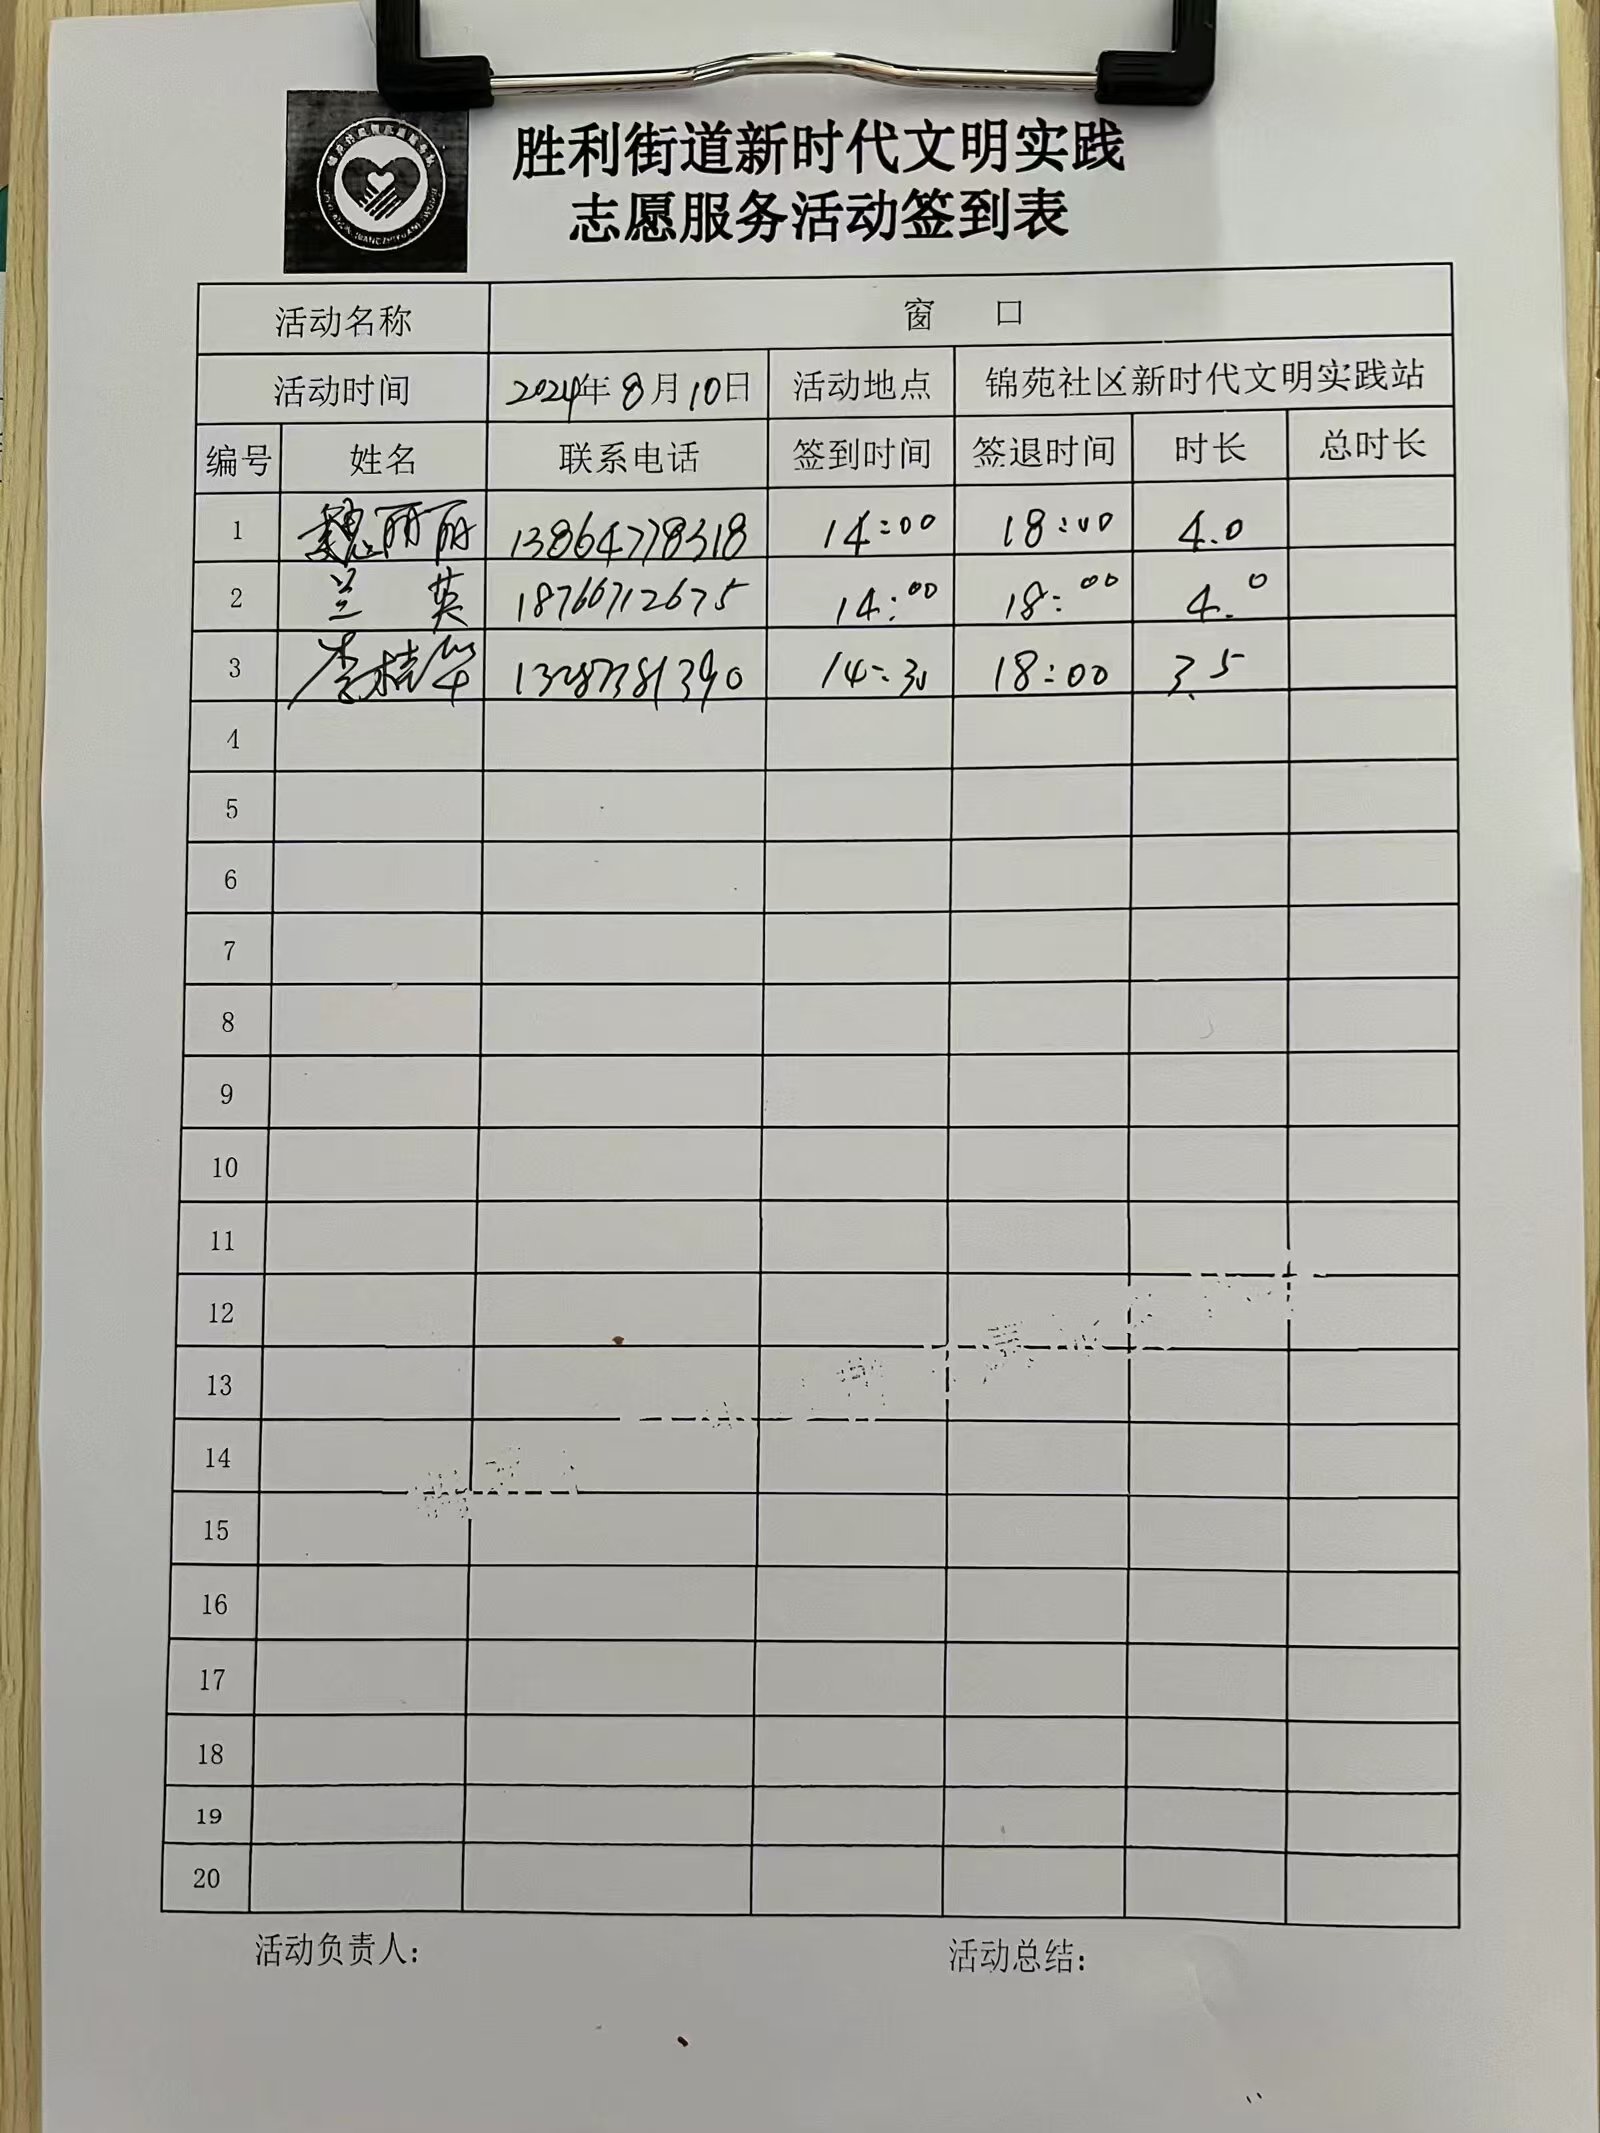 胜利街道新时代文明实践
志愿服务活动签到表
活动名称 窗 口
活动时间 2024年8月10日 活动地点 锦苑社区新时代文明实践站
编号 姓名 联系电话 签到时间 签退时间 时长 总时长
1 魏丽丽 13864778318 14:00 18:00 4.0
2 兰英 18766712675 14:00 18:00 4.0
3 李桂华 13287381390 14:30 18:00 3.5
4
5
6
7
8
9
10
11
12
13
14
15
16
17
18
19
20
活动负责人: 活动总结: